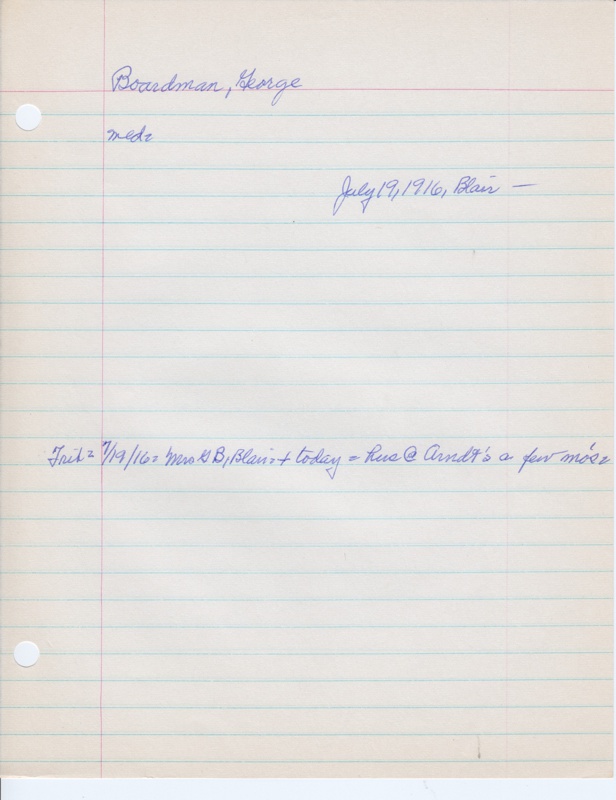 Boardman, George
med=
July 19, 1916, Blair —
Trib= 7/19/16= Mrs G B, Blair= + today = Res @ Arndt's a few mos=